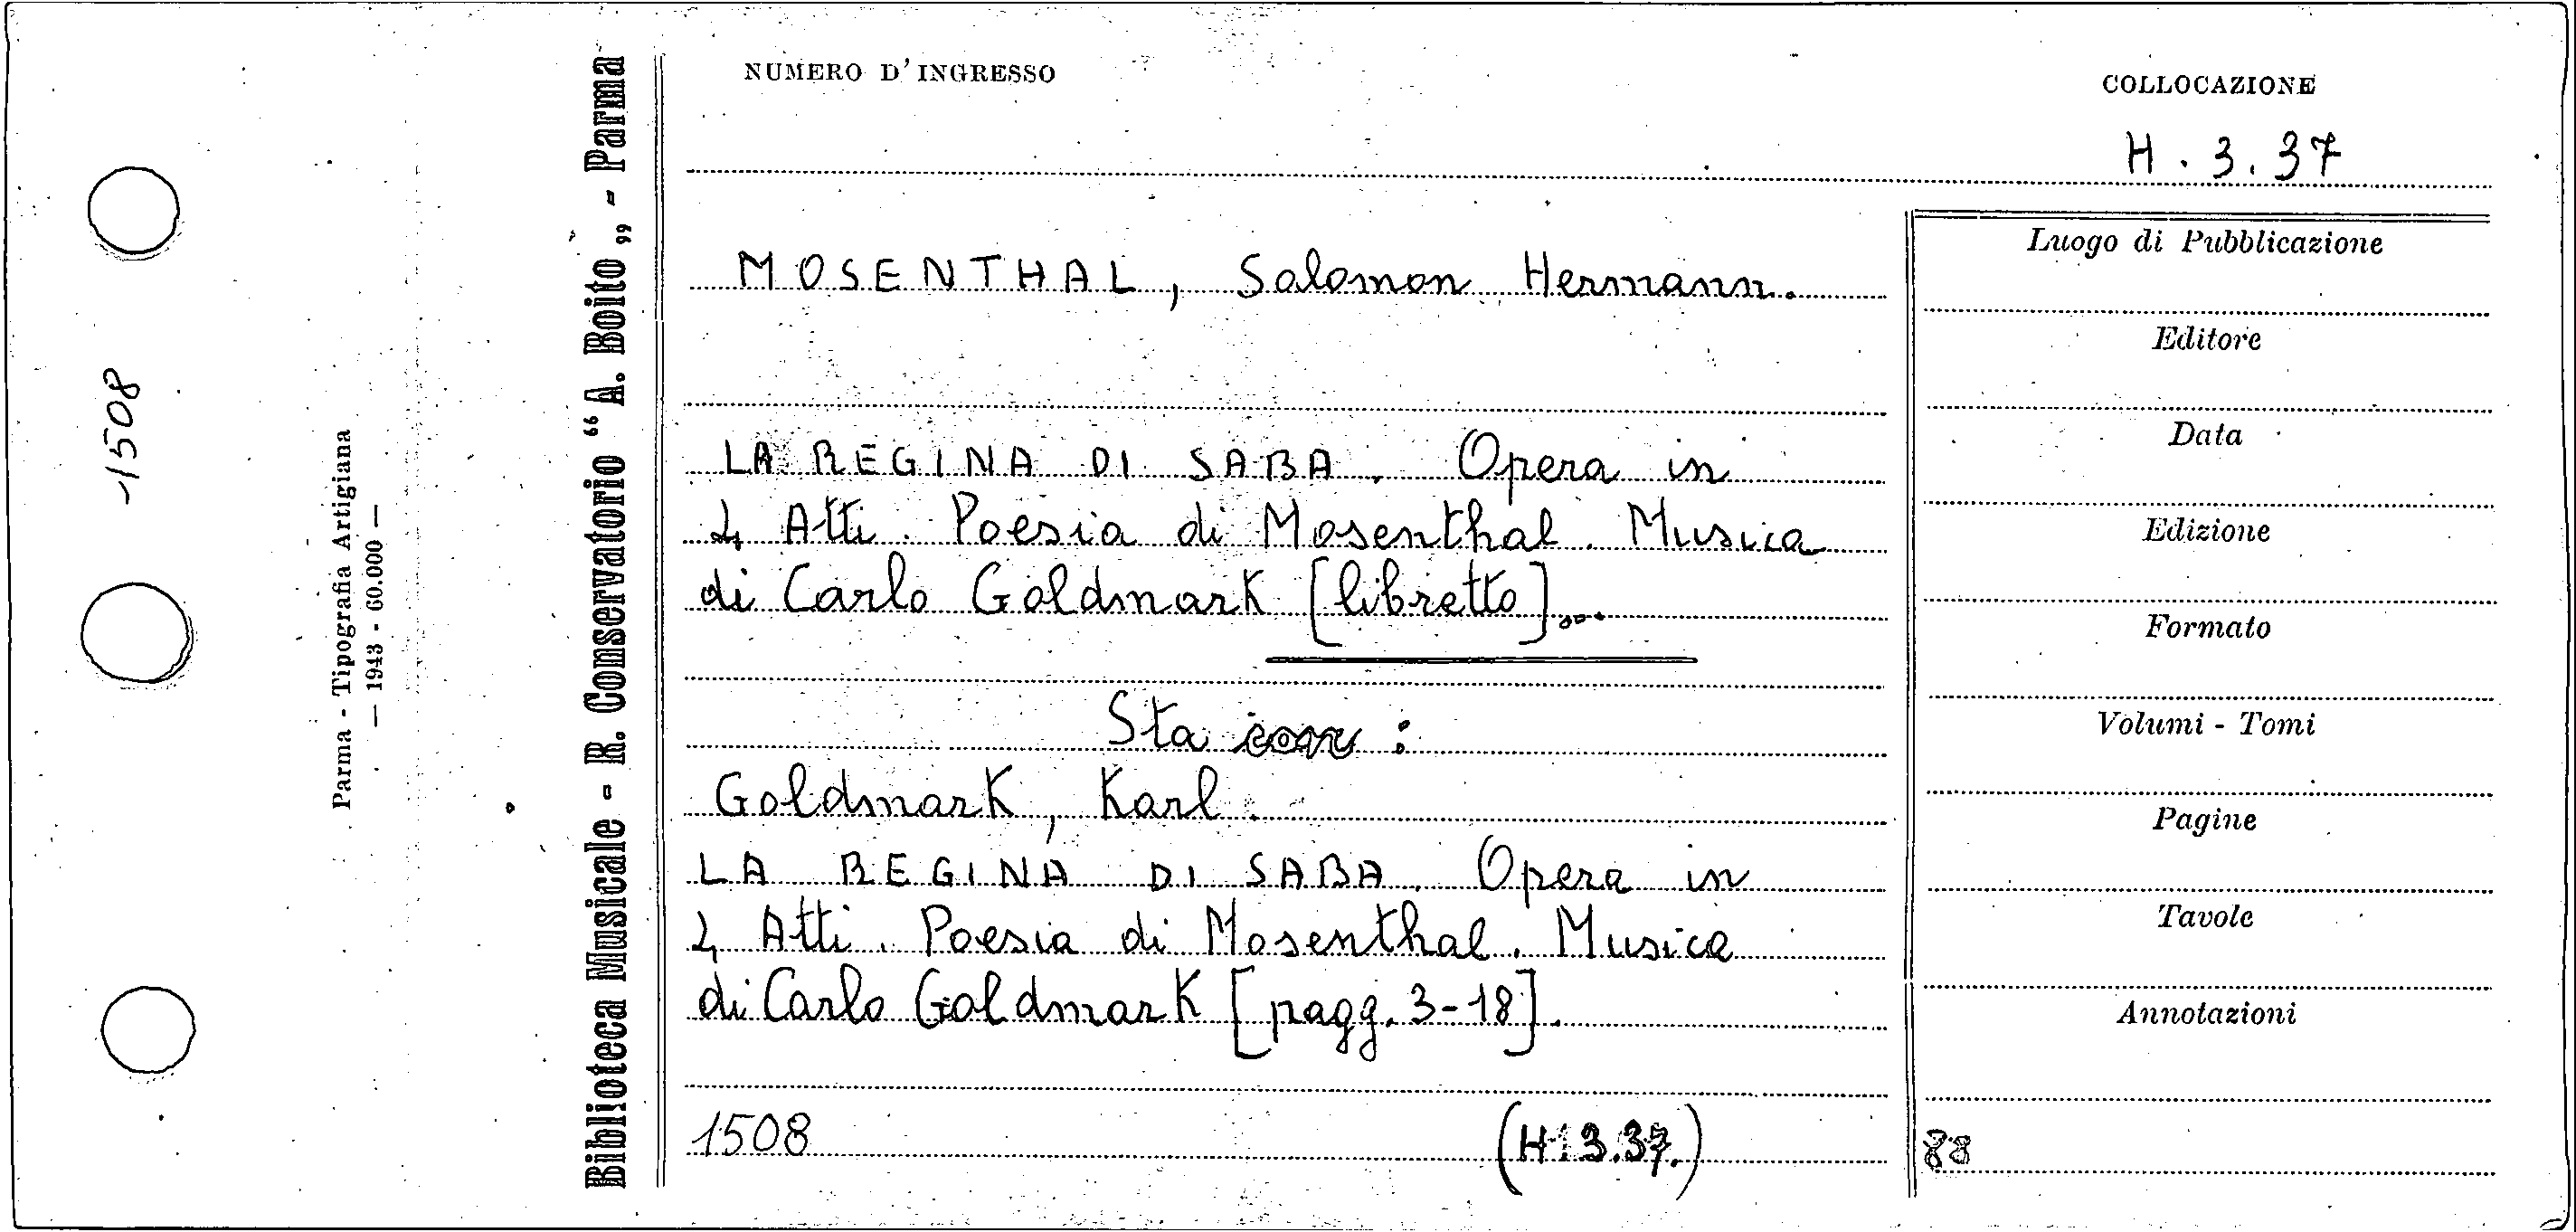 1508
Parma - Tipografia Artigiana
— 1943 - 60.000 —
Biblioteca Musicale - R. Conservatorio “ A. Boito „ - Parma
NUMERO D'INGRESSO
COLLOCAZIONE
H. 3. 37
MOSENTHAL, Salomon Hermann.
LA REGINA DI SABA. Opera in
4 Atti. Poesia di Mosenthal. Musica
di Carlo Goldmark [libretto]...
Sta con :
Goldmark, Karl.
LA REGINA DI SABA. Opera in
4 Atti. Poesia di Mosenthal. Musica
di Carlo Goldmark [pagg. 3-18].
1508
(H.3.37.)
Luogo di Pubblicazione
Editore
Data
Edizione
Formato
Volumi - Tomi
Pagine
Tavole
Annotazioni
88